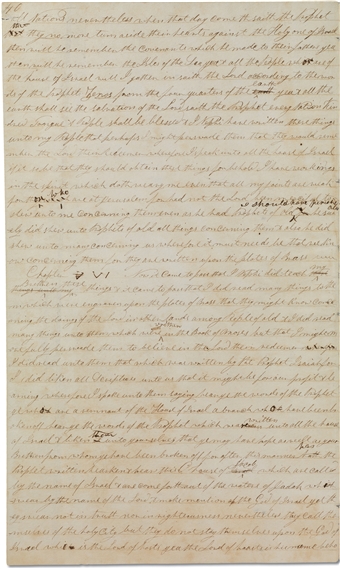 46
Nations nevertheless when that day cometh saith the Prophet
that they no more turn aside their hearts against the Holy one of Israel
then will he remember the Covenants which he made to their fathers yea
then will he remember the Isles of the Sea yea & all the People which are of
the house of Israel will I gather in saith the Lord according to the wo
rds of the Prophet Zenos from the four quarters of the earth yea & all the
earth shall see the salvation of the Lord saith the Prophet every nation kin
dred tongue & People shall be blessed & I Nephi have written these things
unto my People that perhaps I might persuade them that they would rem
ember the Lord their Redeemer wherefore I speak unto all the house of Israel
if it so be that they should obtain these things for behold I have workings
in the spirit which doth weary me even that all my joints are weak
for those who are at Jerusalem for had not the Lord been merciful to
shew unto me concerning them even as he had Prophets of old I should have perished
ely did shew unto Prophets of old all things concerning them & also he did
shew unto many concerning us wherefore it must needs be that we know
concerning them for they are written upon the plates of Brass
Chapter VI Now it came to pass that I Nephi did teach my
Brethren these things & it came to pass that I did read many things to them
which were engraven upon the plates of brass that they might know conce
rning the doings of the Lord in other lands among People of old & I did read
many things unto them which were written in the Book of Moses but that I might mo
re fully persuade them to believe in the Lord their redeemer
I did read unto them that which was written by the Prophet Isaiah for
I did liken all Scriptures unto us that it might be for our profit & lea
rning wherefore I spake unto them saying hear ye the words of the Prophet
ye which are a remnant of the House of Israel a branch which have been bro
ken off hear ye the words of the Prophet which was written unto all the house
of Israel & liken them unto yourselves that ye may have hope as well as your
brethren from whom ye have been broken off for after this manner has the
Prophet written hearken & hear this O house of Jacob which are called
by the name of Israel & are come forth out of the waters of Judah which
swear by the name of the Lord & make mention of the God of Israel yet they
swear not in truth nor in righteousness nevertheless they call them
selves of the holy City but they do not stay themselves upon the God of
Israel which is the Lord of hosts yea the Lord of hosts is his name behold